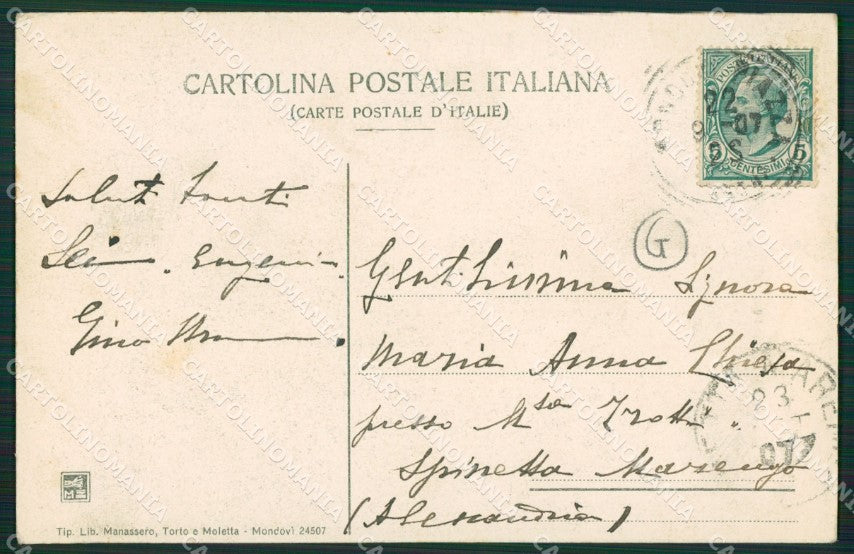 CARTOLINA POSTALE ITALIANA
(CARTE POSTALE D'ITALIE)
POSTE ITALIANE
5 CENTESIMI 5
22
07
G
Saluti
Eugenio
Gino
Gentilissima Signora
Maria Anna Chiesa
presso Msa Trotti
Spinetta Marengo
(Alessandria)
23
07
Tip. Lib. Manassero, Torto e Moletta - Mondovì 24507
CARTOLINOMANIA